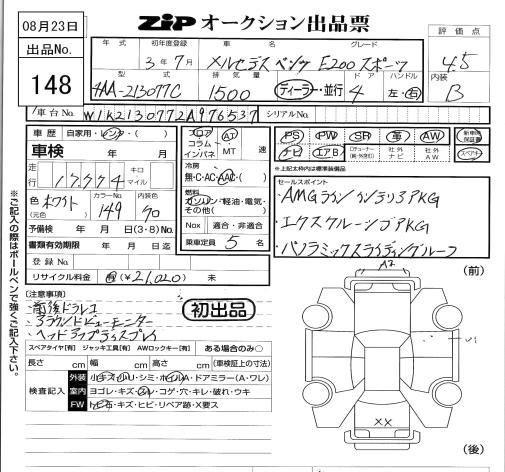 08月23日
ZiP オークション出品票
出品No.
148
評価点
4.5
内装
B
年式 初年度登録 車名 グレード
3年 7月 メルセデスベンツ E200 スポーツ
型式 排気量 ドア ハンドル
4AA-213077C 1500 ディーラー・並行 4 左・右
車台No. W1K2130772A976537 シリアルNo.
車歴 自家用・レンタ・( )
車検 年 月
走行 17,774 キロ マイル
色 ホワイト (元色)
カラーNo. 149
内装色 70
予備検 年 月 日(3・8)No.
書類有効期限 年 月 日迄
登録No.
リサイクル料金 有(¥21,020) 未
フロア コラム インパネ
AT MT 速
冷房
無・C・AC・AAC・( )
燃料
ガソリン・軽油・電気・その他( )
Nox 適合・非適合
乗車定員 5 名
PS PW SR 革 AW 新車時保証書
ナビ エアB 社外ナビ 社外AW スペアキー
※上記太枠内は標準装備品
セールスポイント
AMGラインインテリアPKG
エクスクルーシブPKG
パノラミックスライディングルーフ
[注意事項]
前後ドラレコ
アラウンドビューモニター
ヘッドアップディスプレイ
初出品
スペアタイヤ[有] ジャッキ工具[有] AWロックキー[有] ある場合のみ○
長さ cm 幅 cm 高さ cm (車検証上の寸法)
検査記入
外装 小キズ・小凹・シミ・ホイル・A・ドアミラー(A・ワレ)
室内 ヨゴレ・キズ・スレ・コゲ・穴・キレ・破れ・ウキ
FW トビ石・キズ・ヒビ・リペア跡・X要ス
※ご記入の際はボールペンで強くご記入下さい。
(前)
A2
XX
(後)